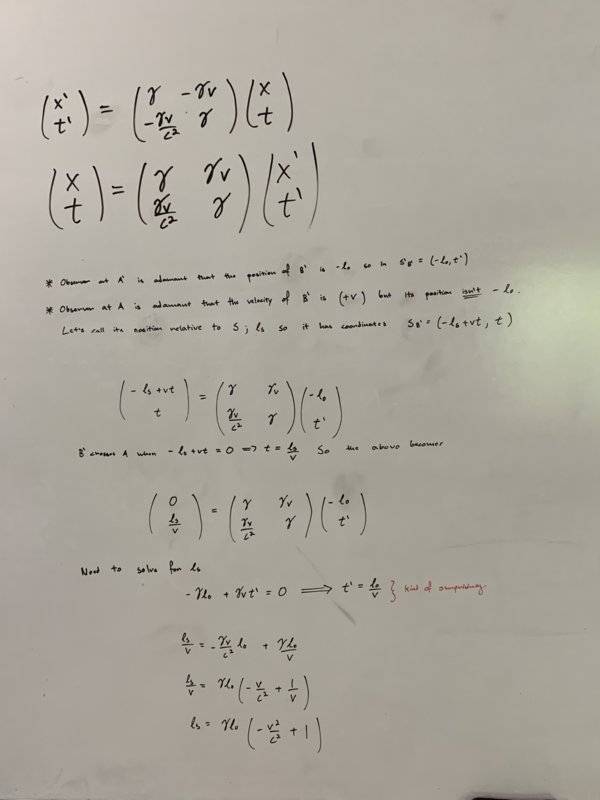 (x' t') = (γ -γv -γv/c² γ) (x t)
(x t) = (γ γv γv/c² γ) (x' t')
* Observer at A' is adamant that the position of B' is -l₀ so in S'B' = (-l₀, t')
* Observer at A is adamant that the velocity of B' is (+v) but its position isn't -l₀.
Let's call its position relative to S; ls so it has coordinates SB' = (-ls+vt, t)
(-ls+vt t) = (γ γv γv/c² γ) (-l₀ t')
B' crosses A when -ls+vt = 0 ⟹ t = ls/v So the above becomes
(0 ls/v) = (γ γv γv/c² γ) (-l₀ t')
Need to solve for ls
-γl₀ + γvt' = 0 ⟹ t' = l₀/v } kind of
ls/v = -γv/c² l₀ + γl₀/v
ls/v = γl₀ (-v/c² + 1/v)
ls = γl₀ (-v²/c² + 1)